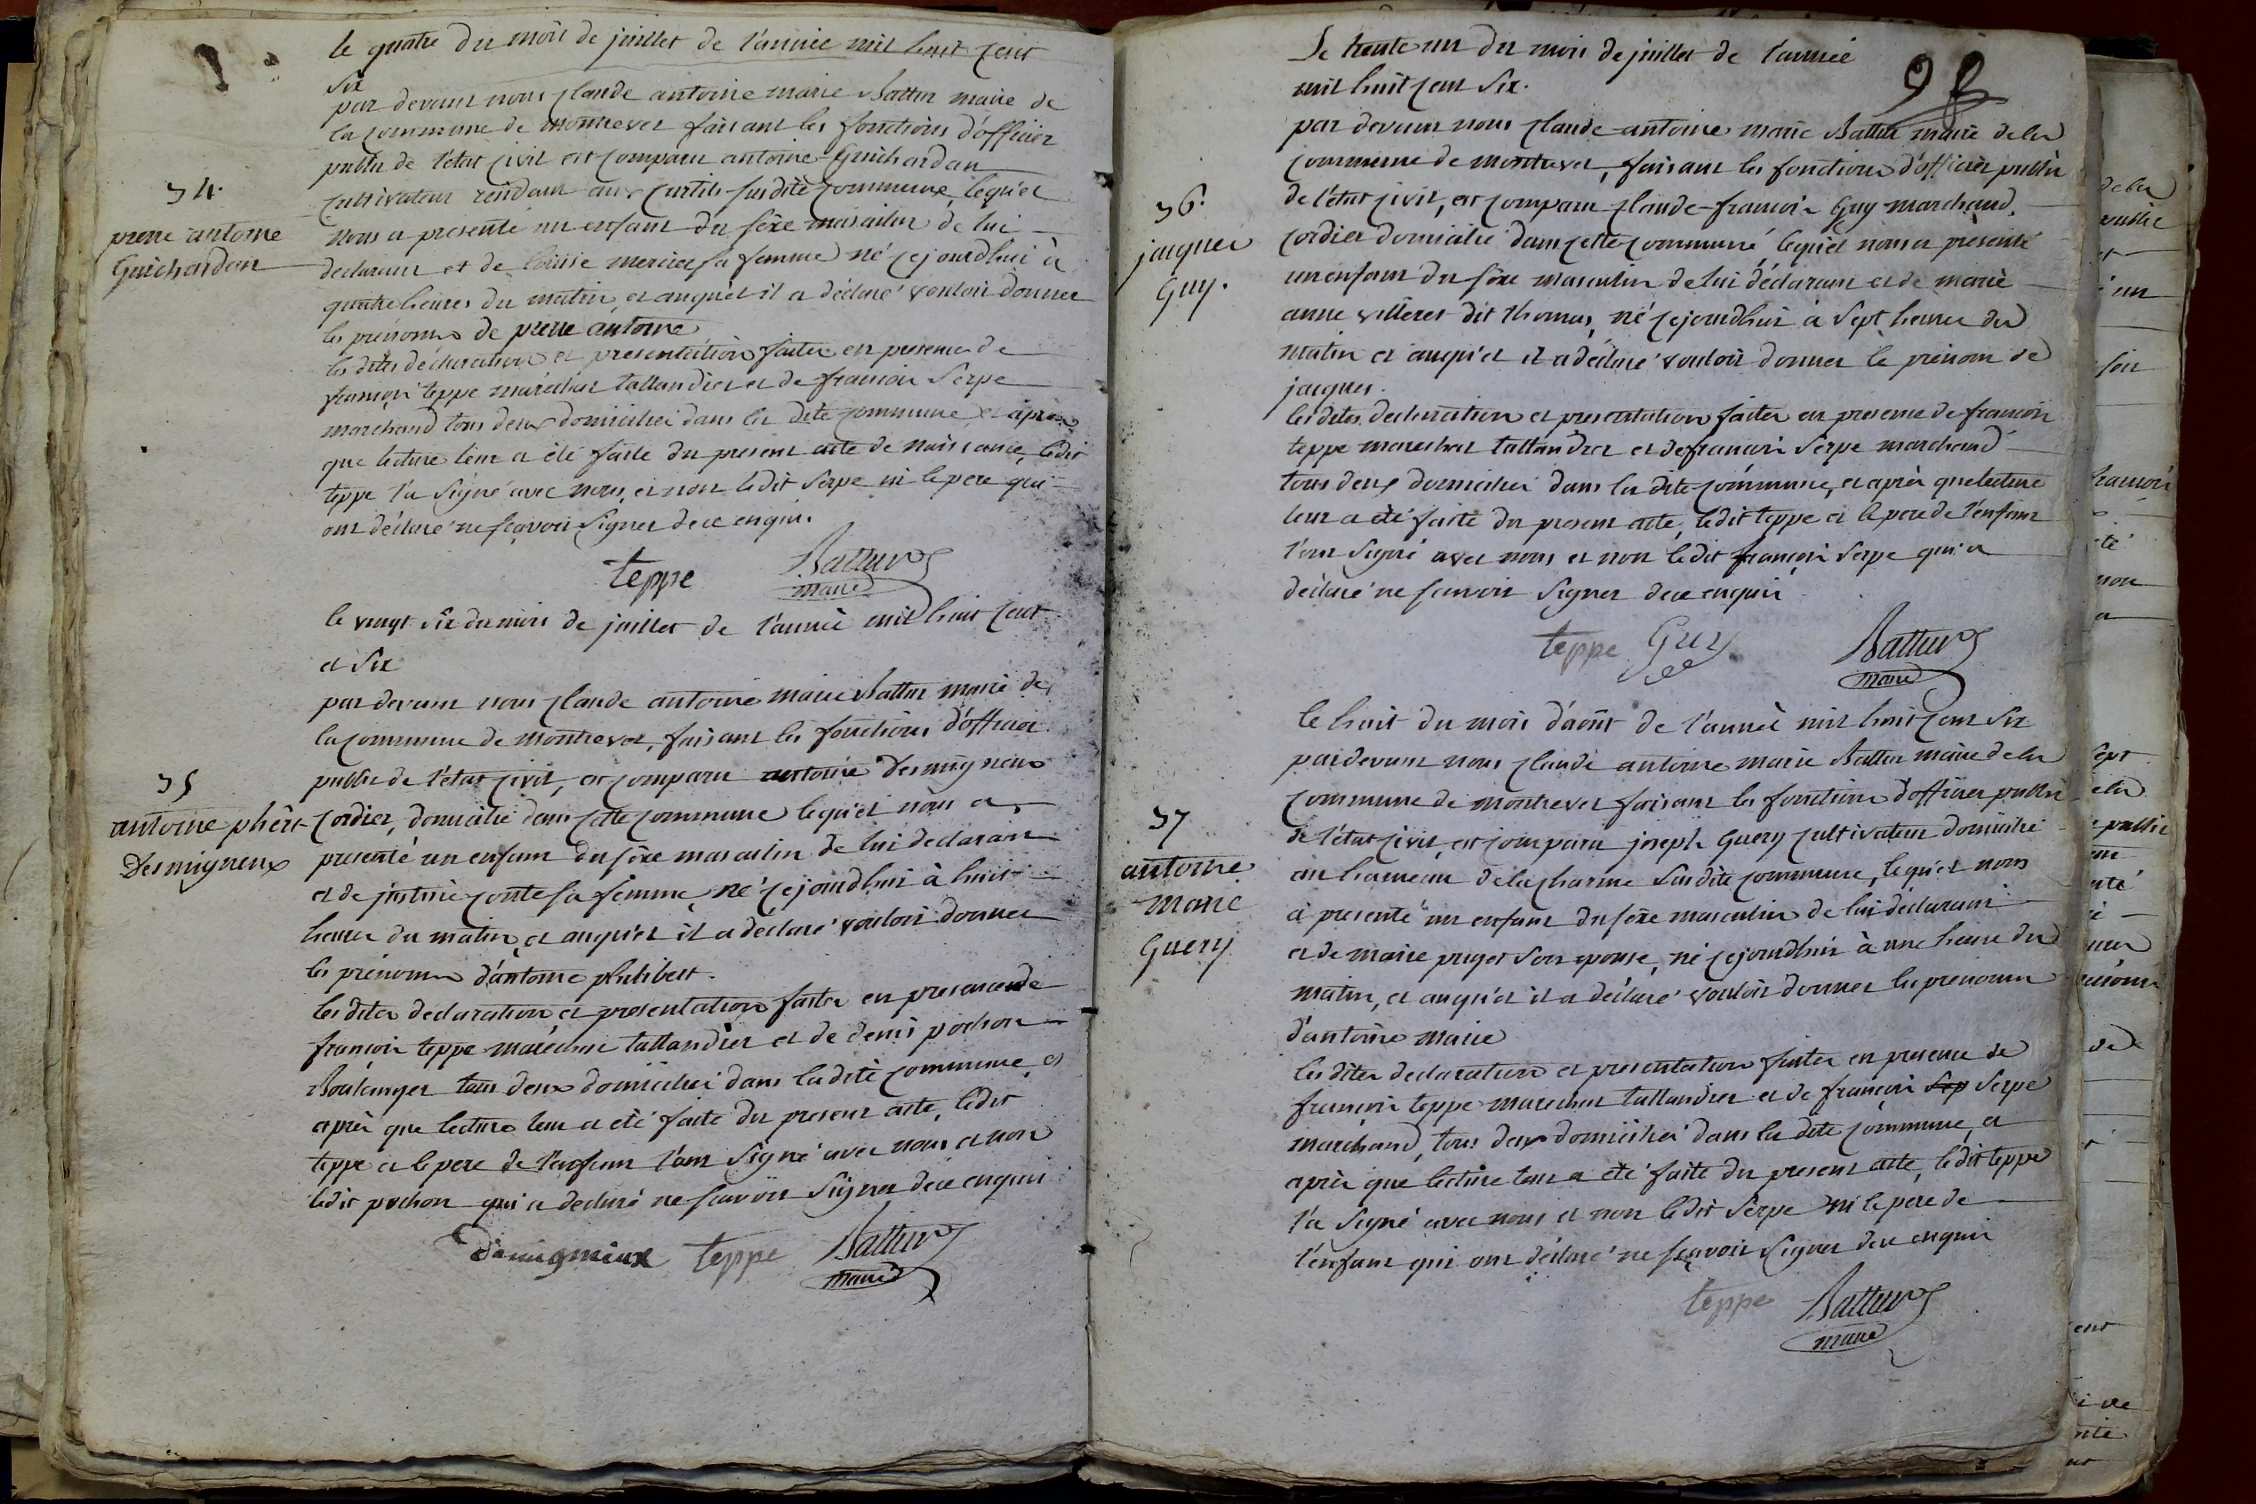 le quatre du mois de juillet de l'année mil huit cent
six
par devant nous claude antoine marie Battur maire de
la commune de montrevel faisant les fonctions d'officier
public de l'état civil est comparu antoine Guichardan
cultivateur résidant aux curtils susdite commune, lequel
nous a presenté un enfant du séxe masculin de lui
declarant et de louise mercier sa femme né cejourdhui à
quatre heures du matin, et auquel il a déclaré vouloir donner
les prénoms de pierre antoine
les dites declaration et presentation faites en presence de
françois teppe maréchal tallandier et de françois Serpe
marchand tous deux domiciliés dans la dite commune et après
que lecture leur a été faite du present acte de naissance, ledit
teppe l'a signé avec nous, et non ledit Serpe ni le pere qui
ont déclaré ne sçavoir signer de ce enquis.
teppe Battur
maire
34.
pierre antoine
Guichardan
le vingt six du mois de juillet de l'année mil huit cent
et six
par devant nous claude antoine marie Battur maire de
la commune de montrevel, faisant les fonctions d'officier
public de l'état civil, est comparu antoine Desmigneux
cordier, domicilié dans cette commune lequel nous a
presenté un enfant du séxe masculin de lui declarant
et de justine conte sa femme, né cejourdhui à huit
heures du matin, et auquel il a déclaré vouloir donner
les prénoms d'antoine philibert.
les dites declaration et presentation faites en presence de
françois teppe maréchal tallandier et de denis pochon
Boulanger tous deux domiciliés dans la dite commune, et
après que lecture leur a été faite du present acte, ledit
teppe et le pere de l'enfant l'ont signé avec nous et non
ledit pochon qui a declaré ne scavoir signer de ce enquis
demigneiux teppe Battur
maire
35
antoine phért
Desmigneux
98
Le trente un du mois de juillet de l'année
mil huit cent six.
par devant nous claude antoine marie Battur maire de la
commune de montrevel, faisant les fonctions d'officier public
de l'état civil, est comparu claude-françois Guy marchand
cordier domicilié dans cette commune, lequel nous a présenté
un enfant du séxe masculin de lui déclarant et de marie
anne villeret dit thomas, né cejourdhui à sept heures du
matin et auquel il a déclaré vouloir donner le prénom de
jacques.
les dites declaration et presentation faites en presence de françois
teppe marechal tallandier et de françois Serpe marchand
tous deux domiciliés dans la dite commune, et après que lecture
leur a été faite du present acte, ledit teppe et le pere de l'enfant
l'ont signé avec nous et non ledit françois Serpe qui a
déclaré ne scavoir signer de ce enquis
teppe Guy Battur
maire
36.
jacques
Guy.
le huit du mois d'août de l'année mil huit cent six
par devant nous claude antoine marie Battur maire de la
commune de montrevel faisant les fonctions d'officier public
de l'état civil, est comparu joseph Guery cultivateur domicilié
au hameau de la charme susdite commune, lequel nous
a presenté un enfant du séxe masculin de lui déclarant
et de marie puget son epouse, né cejourdhui à une heure du
matin, et auquel il a déclaré vouloir donner les prenoms
d'antoine marie
les dites declaration et presentation faites en presence de
françois teppe marechal tallandier et de françois Sep Serpe
marchand, tous deux domiciliés dans la dite commune, et
après que lecture leur a été faite du present acte, ledit teppe
l'a signé avec nous et non ledit Serpe ni le pere de
l'enfant qui ont déclaré ne sçavoir signer de ce enquis
teppe Battur
maire
37
antoine
marie
Guery